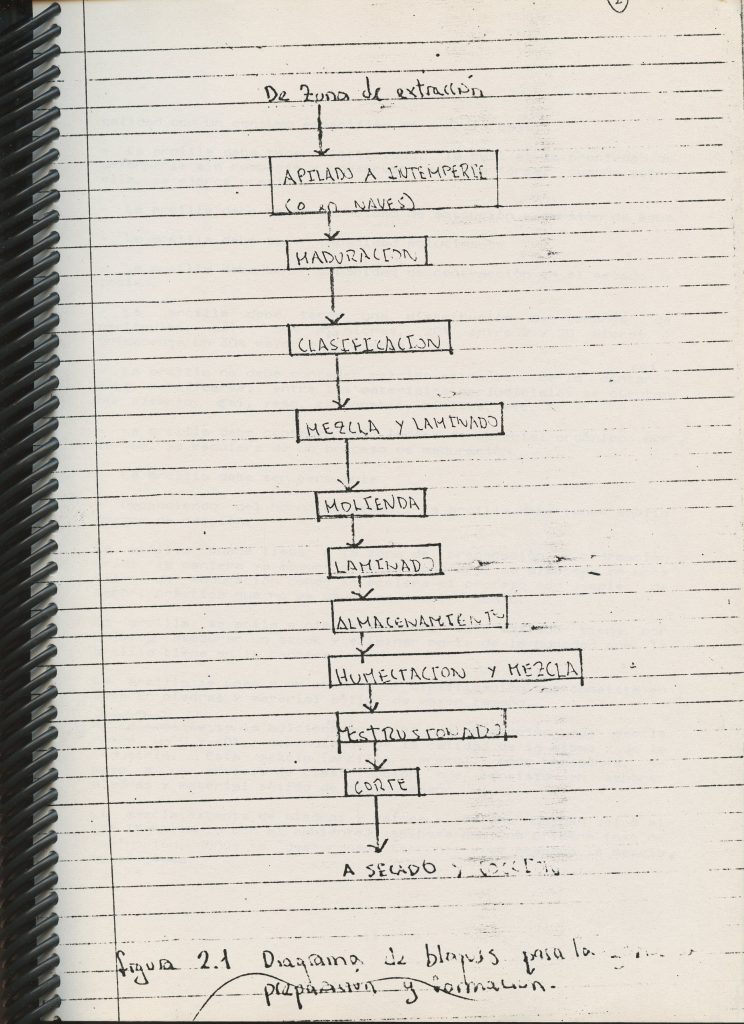 De Zona de extracción
APILADO A INTEMPERIE
(O en NAVES)
MADURACION
CLASIFICACION
MEZCLA Y LAMINADO
MOLIENDA
LAMINADO
ALMACENAMIENTO
HUMECTACION Y MEZCLA
ESTRUSIONADO
CORTE
A SECADO Y COCCION
figura 2.1 Diagrama de bloques para la
preparación y formación.